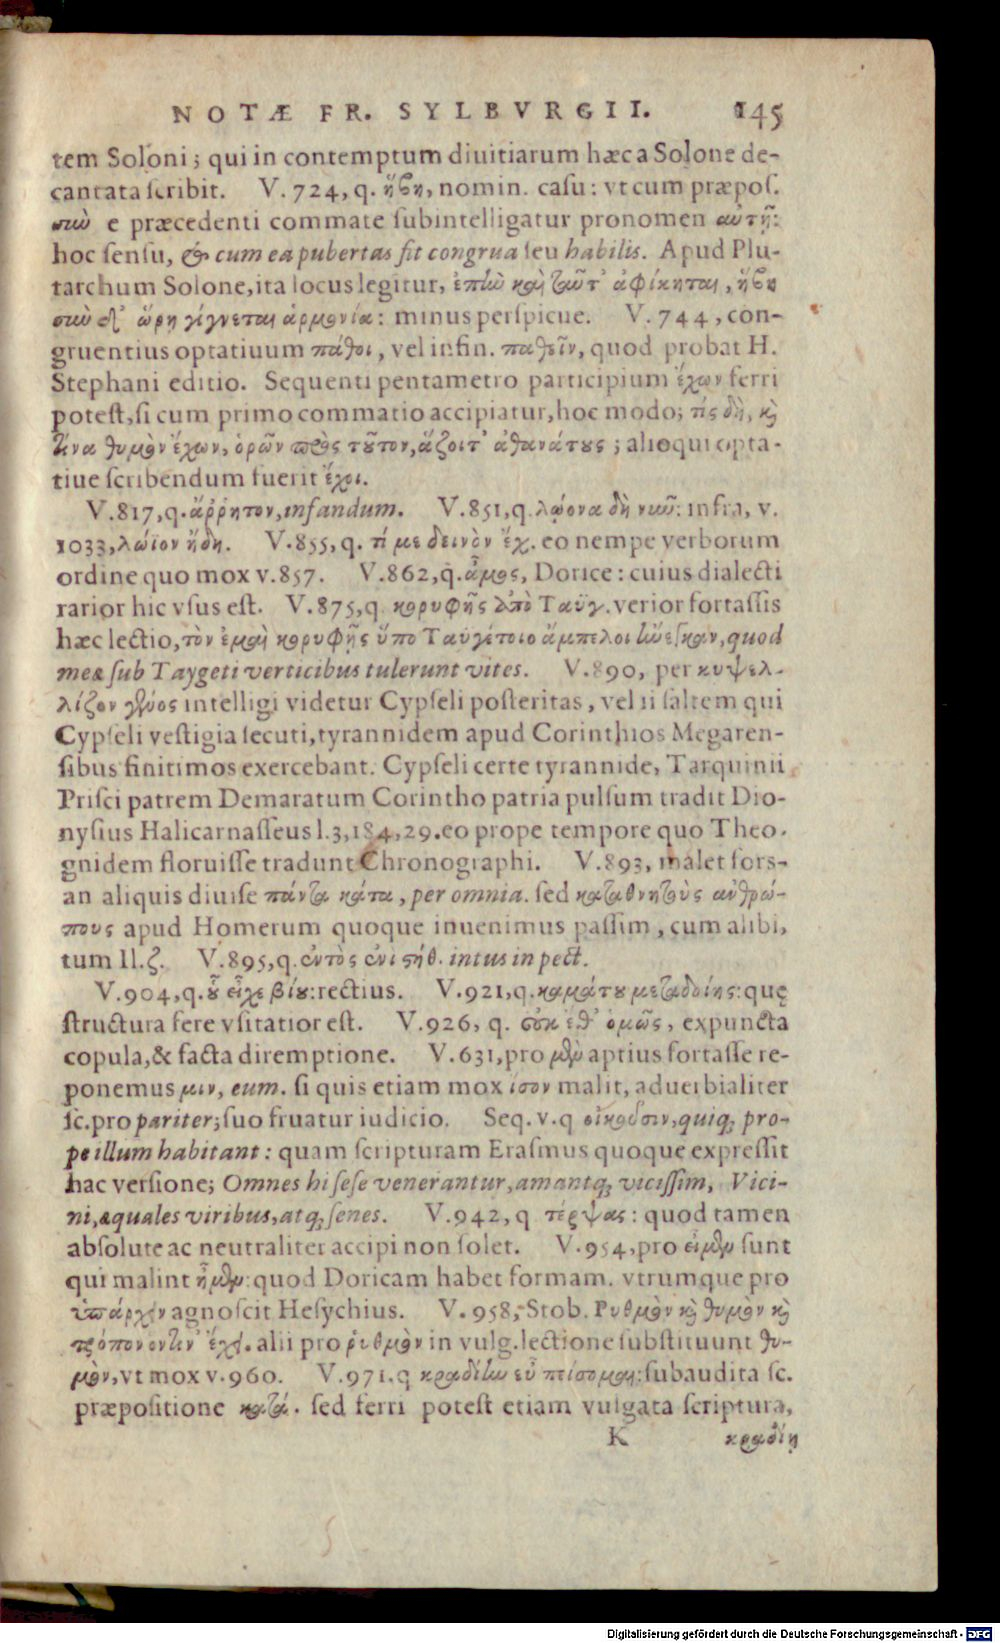 NOTÆ FR. SYLBVRGII. 145
tem Soloni; qui in contemptum diuitiarum hæc a Solone de-
cantata scribit. V. 724, q. ἥβη, nomin. casu: vt cum præpos.
σιὼ e præcedenti commate subintelligatur pronomen αὐτῇ:
hoc sensu, & cum ea pubertas fit congrua seu habilis. Apud Plu-
tarchum Solone, ita locus legitur, ἐπὶὼ καὶ ταῦτ' ἀφίκηται, ἥβη
σιὼ δ' ὥρη γίγνεται ἁρμονία: minus perspicue. V. 744, con-
gruentius optatiuum πάθοι, vel infin. παθεῖν, quod probat H.
Stephani editio. Sequenti pentametro participium ἔχων ferri
potest, si cum primo commatio accipiatur, hoc modo; τίς δὴ, καὶ
τίνα θυμὸν ἔχων, ὁρῶν πρὸς τοῦτον, ἅζοιτ' ἀθανάτους; alioqui opta-
tiue scribendum fuerit ἔχοι.
V. 817, q. ἄῤῥητον, infandum. V. 851, q. λῴονα δὴ νιῶ: infra, v.
1033, λώϊον ἤδη. V. 855, q. τί με δεινὸν ἔχ. eo nempe verborum
ordine quo mox v. 857. V. 862, q. ἆμος, Dorice: cuius dialecti
rarior hic vsus est. V. 875, q κορυφῆς ἀπὸ Ταϋγ. verior fortassis
hæc lectio, τὸν ἐμαὶ κορυφῆς ὕπο Ταϋγέτοιο ἄμπελοι ἰὼεσκαν, quod
meæ sub Taygeti verticibus tulerunt vites. V. 890, per κυψελ-
λίζον γένος intelligi videtur Cypseli posteritas, vel ii saltem qui
Cypseli vestigia secuti, tyrannidem apud Corinthios Megaren-
sibus finitimos exercebant. Cypseli certe tyrannide, Tarquinii
Prisci patrem Demaratum Corintho patria pulsum tradit Dio-
nysius Halicarnasseus l. 3, 184, 29. eo prope tempore quo Theo-
gnidem floruisse tradunt Chronographi. V. 893, malet fors-
an aliquis diuise πάντα κάτα, per omnia. sed καταθνητοὺς ἀνθρώ-
πους apud Homerum quoque inuenimus passim, cum alibi,
tum Il. ζ. V. 895, q. ἐντὸς ἐνὶ στήθ. intus in pect.
V. 904, q. οὗ εἶχε βίου: rectius. V. 921, q. καμάτου μεταδοίης: quę
structura fere vsitatior est. V. 926, q. οὐκ ἔθ' ὁμῶς, expuncta
copula, & facta diremptione. V. 631, pro μὲν aptius fortasse re-
ponemus μιν, eum. si quis etiam mox ἶσον malit, aduerbialiter
sc. pro pariter; suo fruatur iudicio. Seq. v. q οἰκοῦσιν, quiq; pro-
pe illum habitant: quam scripturam Erasmus quoque expressit
hac versione; Omnes hi sese venerantur, amantq; vicissim, Vici-
ni, æquales viribus, atq; senes. V. 942, q τέρψας: quod tamen
absolute ac neutraliter accipi non solet. V. 954, pro εἰμὲν sunt
qui malint ἦμεν: quod Doricam habet formam. vtrumque pro
ὑπάρχειν agnoscit Hesychius. V. 958, Stob. Ρυθμὸν καὶ θυμὸν καὶ
τρόπον ὅντιν' ἔχει. alii pro ῥυθμὸν in vulg. lectione substituunt θυ-
μὸν, vt mox v. 960. V. 971. q κραδίὼ εὖ πείσομαι: subaudita sc.
præpositione κατά. sed ferri potest etiam vulgata scriptura,
K κραδίη
Digitalisierung gefördert durch die Deutsche Forschungsgemeinschaft - DFG